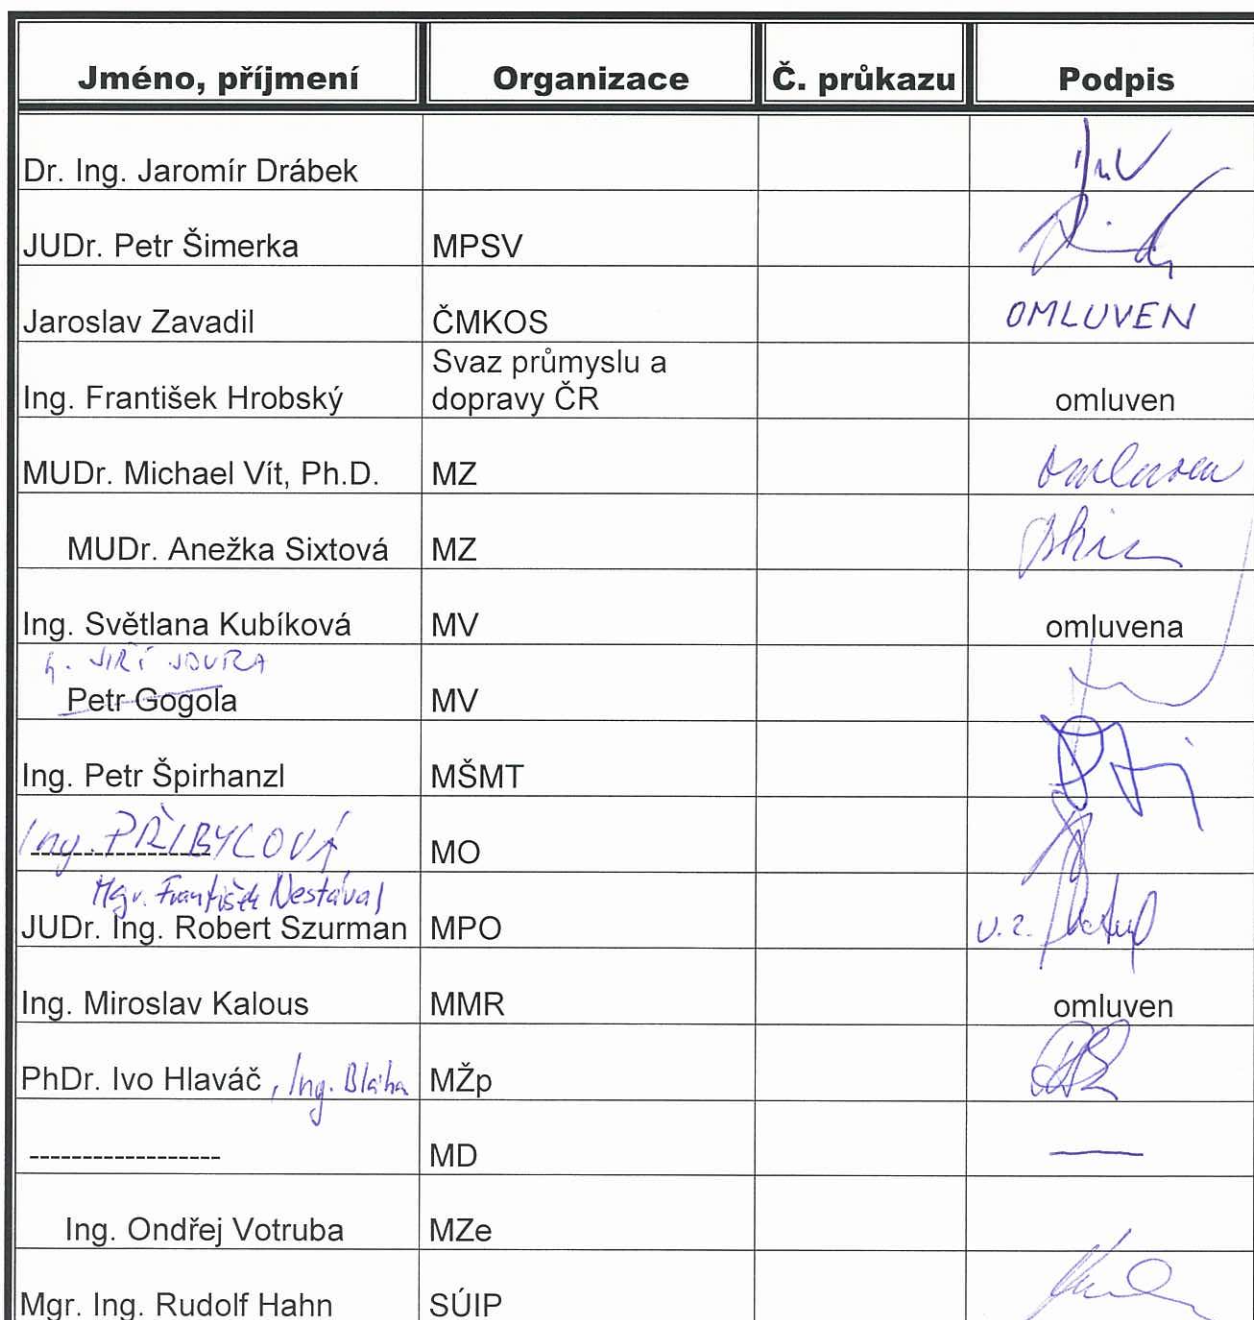 Jméno, příjmení Organizace Č. průkazu Podpis
Dr. Ing. Jaromír Drábek
JUDr. Petr Šimerka MPSV
Jaroslav Zavadil ČMKOS OMLUVEN
Svaz průmyslu a
Ing. František Hrobský dopravy ČR omluven
MUDr. Michael Vít, Ph.D. MZ omluven
MUDr. Anežka Sixtová MZ
Ing. Světlana Kubíková MV omluvena
JIŘÍ JOURA
Petr Gogola MV
Ing. Petr Špirhanzl MŠMT
Ing. PŘIBYLOVÁ MO
Mgr. František Nestával
JUDr. Ing. Robert Szurman MPO v.z.
Ing. Miroslav Kalous MMR omluven
PhDr. Ivo Hlaváč, Ing. Bláha MŽp
------------------ MD —
Ing. Ondřej Votruba MZe
Mgr. Ing. Rudolf Hahn SÚIP